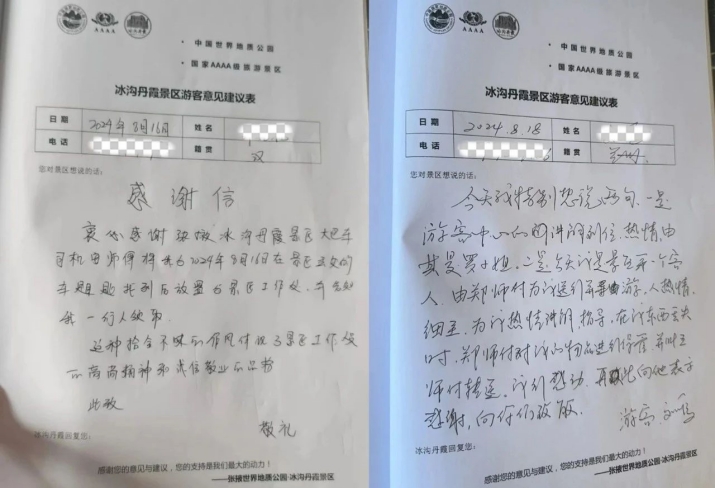 AAAA
• 中国世界地质公园
• 国家AAAA级旅游景区
冰沟丹霞景区游客意见建议表
日期 2024年8月16日 姓名
电话 籍贯 汉
您对景区想说的话：
感谢信
衷心感谢张掖冰沟丹霞景区大巴车
司机 师傅将我2024年8月16日在景区 的
后放置 景区工作处，并告知
我一行人 。
这种拾金不昧的作风体现了景区工作人员
的高尚精神和诚信敬业的品格
此致
敬礼
冰沟丹霞回复您：
感谢您的意见与建议，您的支持是我们最大的动力！
——张掖世界地质公园·冰沟丹霞景区
AAAA
• 中国世界地质公园
• 国家AAAA级旅游景区
冰沟丹霞景区游客意见建议表
日期 2024.8.18 姓名
电话 籍贯 兰州
您对景区想说的话：
今天我特别想说两句，一是
游客中心的 讲解到位，热情，尤
其是罗小姐，二是今天我是 一个客
人，由郑师付为我 游，人热情，
细至，为我热情讲解，指导，在我东西丢失
时，郑师付对我的物品进行保管，并叫王
师付转至，我很感动，再次向他表示
感谢，向你们致敬。
游客
冰沟丹霞回复您：
感谢您的意见与建议，您的支持是我们最大的动力！
——张掖世界地质公园·冰沟丹霞景区